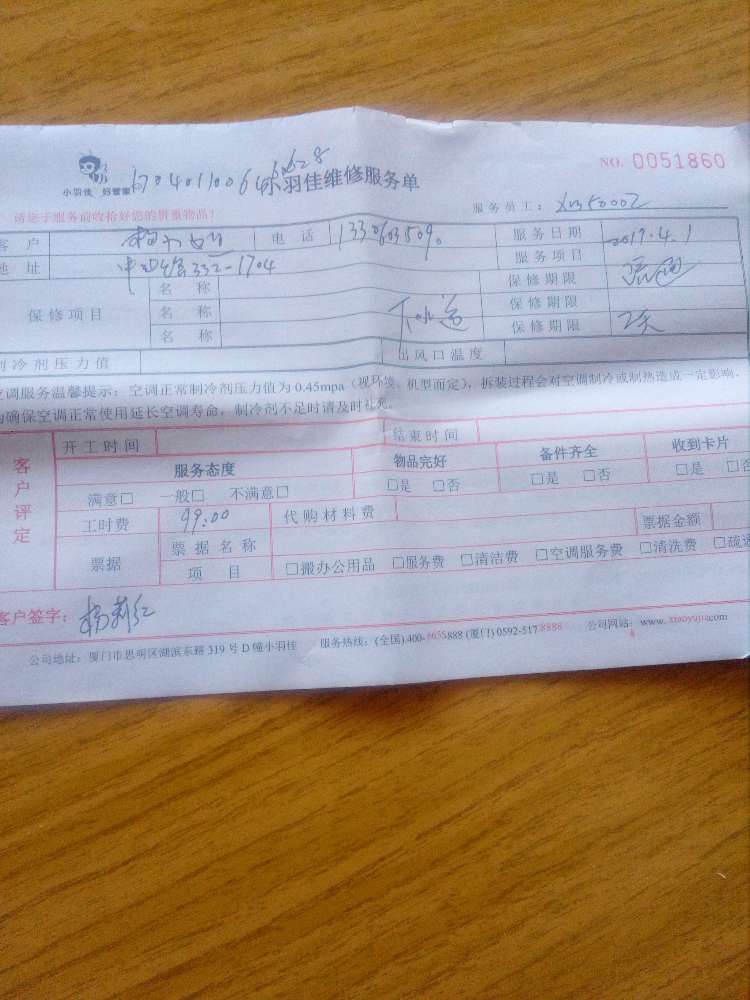 小羽佳 好管家 小羽佳维修服务单 NO. 0051860
请您于服务前收拾好您的贵重物品! 服务员工:
客户 电话 服务日期 2017.4.1
地址 332-1704 服务项目 疏通
保修项目 名称 下水道 保修期限
名称 保修期限
名称 保修期限
制冷剂压力值 出风口温度
空调服务温馨提示: 空调正常制冷剂压力值为 0.45mpa (视环境、机型而定), 拆装过程会对空调制冷或制热造成一定影响,
为确保空调正常使用延长空调寿命, 制冷剂不足时请及时补充。
客户评定 开工时间 结束时间
服务态度 物品完好 备件齐全 收到卡片
满意□ 一般□ 不满意□ □是 □否 □是 □否 □是 □否
工时费 99.00 代购材料费
票据 票据名称 票据金额
项目 □搬办公用品 □服务费 □清洁费 □空调服务费 □清洗费 □疏通
客户签字: 杨莉红
公司地址: 厦门市思明区湖滨东路 319 号 D 幢小羽佳 服务热线: (全国) 400-6655888 (厦门) 0592-5178886 公司网站: www. xiaoyujia.com